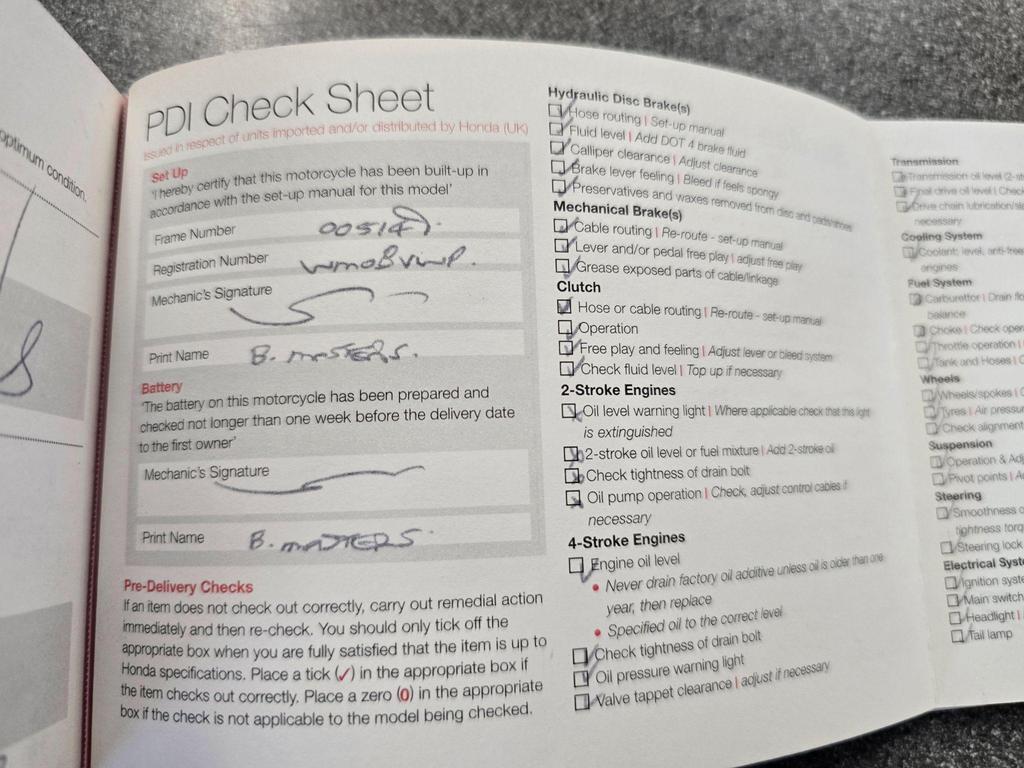 optimum condition.
PDI Check Sheet
Issued in respect of units imported and/or distributed by Honda (UK)
Set Up
'I hereby certify that this motorcycle has been built-up in
accordance with the set-up manual for this model'
Frame Number
Registration Number WM08VWP.
Mechanic's Signature
Print Name B. MASTERS.
Battery
'The battery on this motorcycle has been prepared and
checked not longer than one week before the delivery date
to the first owner'
Mechanic's Signature
Print Name B. MASTERS.
Pre-Delivery Checks
If an item does not check out correctly, carry out remedial action
immediately and then re-check. You should only tick off the
appropriate box when you are fully satisfied that the item is up to
Honda specifications. Place a tick (✓) in the appropriate box if
the item checks out correctly. Place a zero (0) in the appropriate
box if the check is not applicable to the model being checked.
Hydraulic Disc Brake(s)
Hose routing | Set-up manual
Fluid level | Add DOT 4 brake fluid
Calliper clearance | Adjust clearance
Brake lever feeling | Bleed if feels spongy
Preservatives and waxes removed from disc and pads/shoes
Mechanical Brake(s)
Cable routing | Re-route - set-up manual
Lever and/or pedal free play | adjust free play
Grease exposed parts of cable/linkage
Clutch
Hose or cable routing | Re-route - set-up manual
Operation
Free play and feeling | Adjust lever or bleed system
Check fluid level | Top up if necessary
2-Stroke Engines
Oil level warning light | Where applicable check that this light
is extinguished
2-stroke oil level or fuel mixture | Add 2-stroke oil
Check tightness of drain bolt
Oil pump operation | Check, adjust control cables if
necessary
4-Stroke Engines
Engine oil level
• Never drain factory oil additive unless oil is older than one
year, then replace
• Specified oil to the correct level
Check tightness of drain bolt
Oil pressure warning light
Valve tappet clearance | adjust if necessary
Transmission
Transmission oil level (2-st
Final drive oil level | Check
Drive chain lubrication/sl
necessary
Cooling System
Coolant: level, anti-free
engines
Fuel System
Carburettor | Drain flo
balance
Choke | Check oper
Throttle operation |
Tank and Hoses | C
Wheels
Wheels/spokes | C
Tyres | Air pressu
Check alignment
Suspension
Operation & Adj
Pivot points | A
Steering
Smoothness o
tightness torq
Steering lock
Electrical Syste
Ignition syste
Main switch
Headlight |
Tail lamp